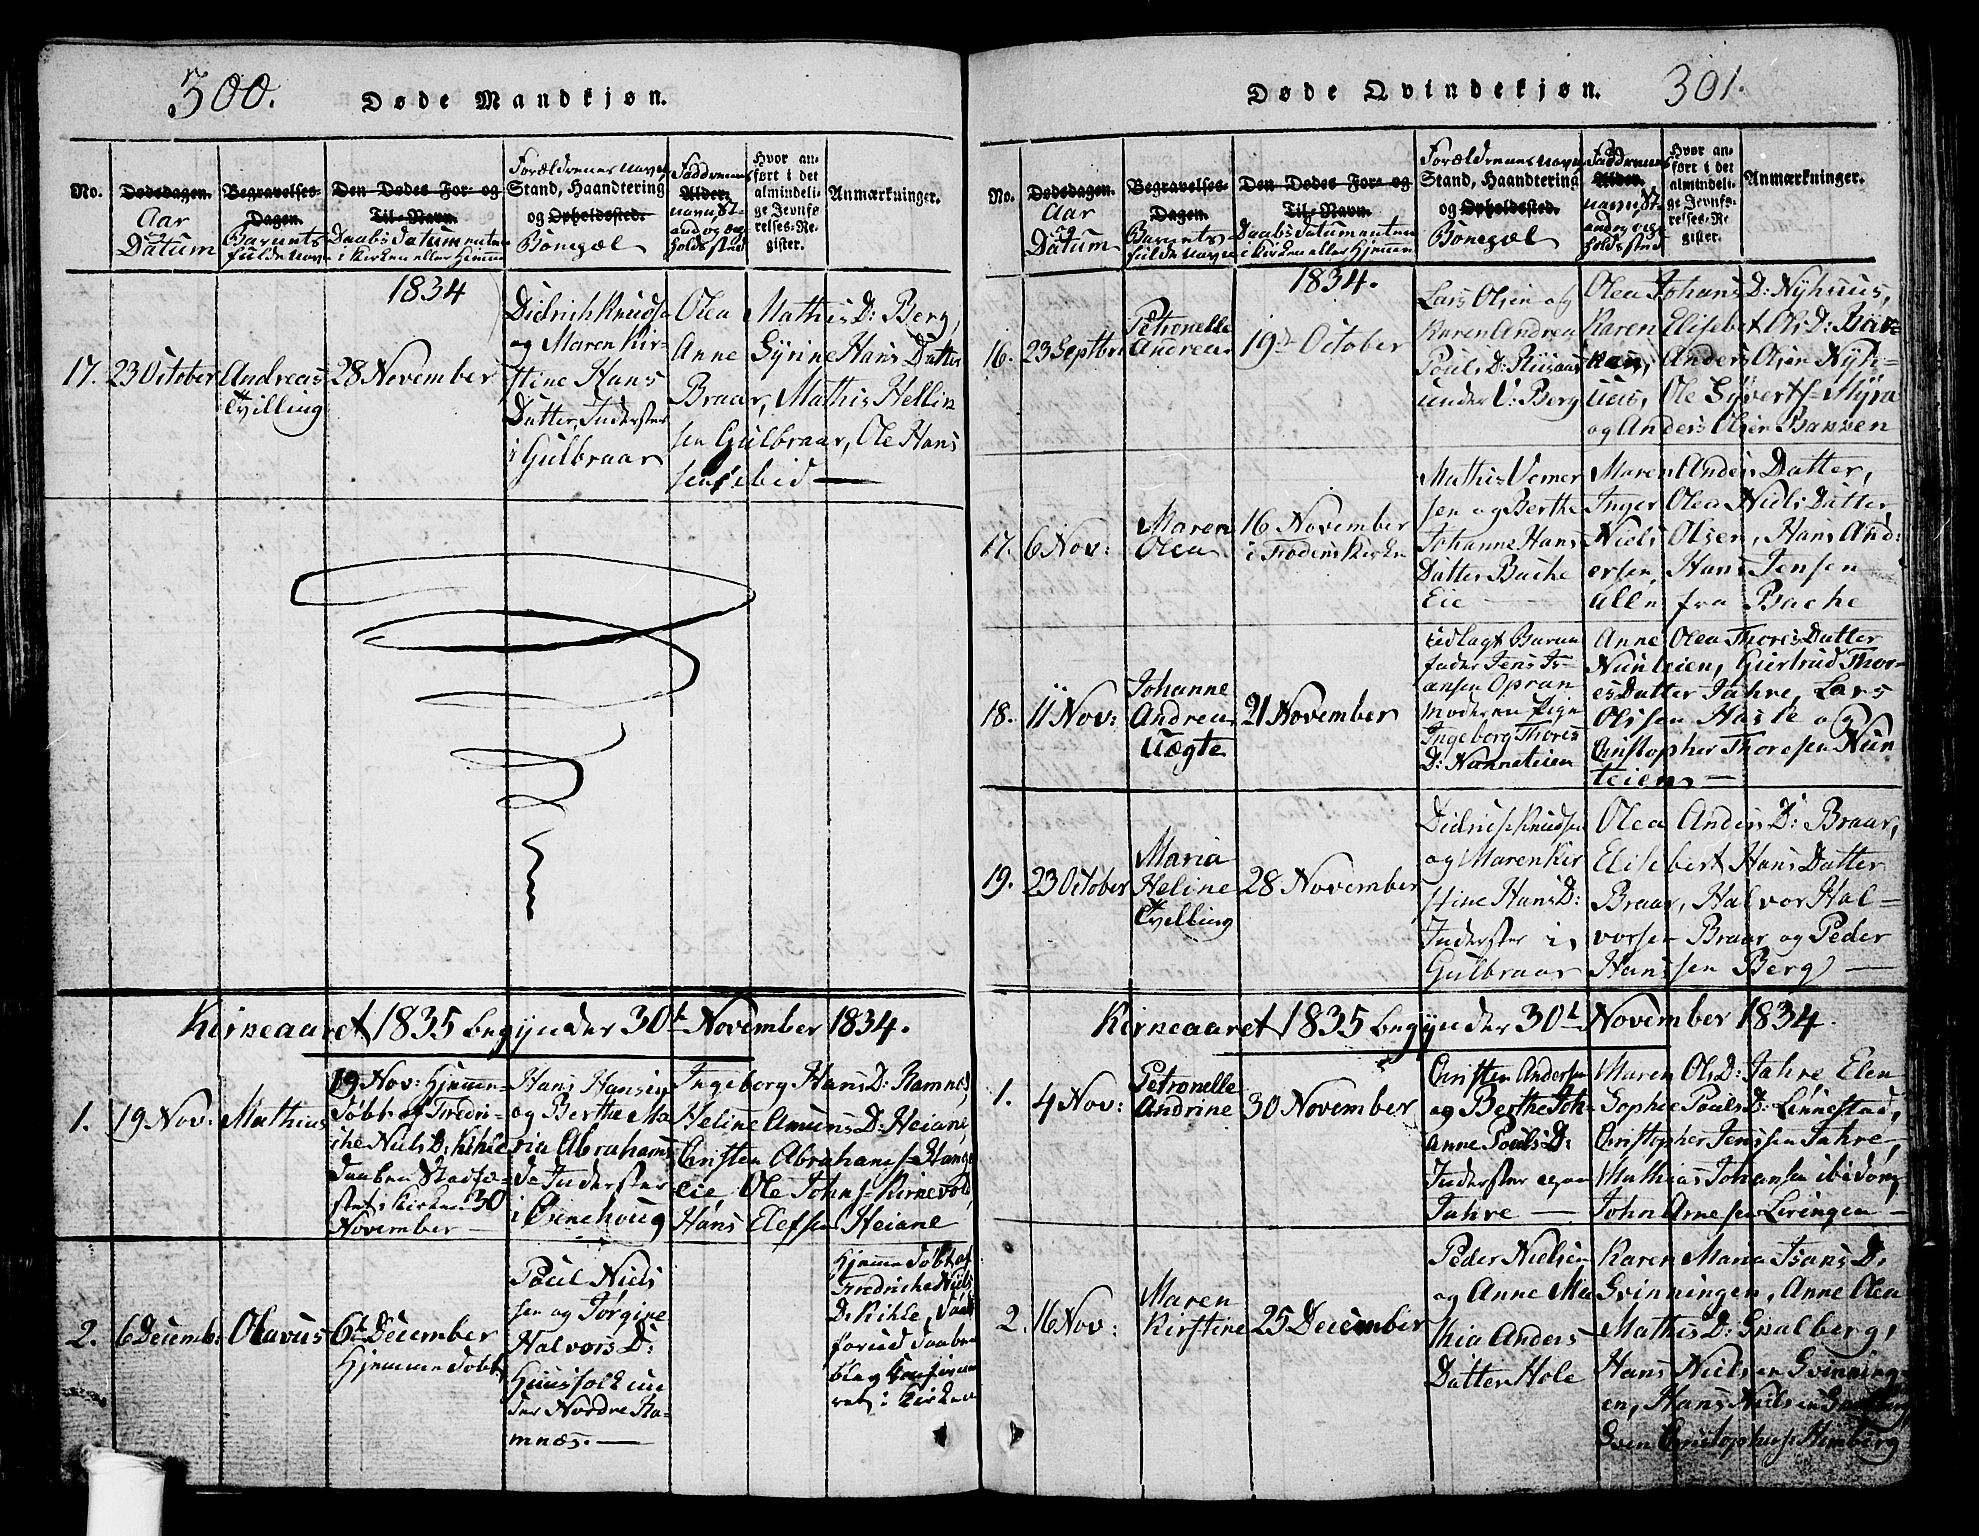 300.
Døde Mandkjøn.
No.
Dødsdagen.
Aar
og
Datum
Begravelses-
Dagen.
Barnets
fulde Navn
Den Dødes For- og
Til-Navn.
Daabs Datum enten
i Kirken eller Hjemme
Forældrenes Navn
Stand, Haandtering
og Opholdssted.
Bønegæl
Faddrenes
Alder.
Navn St-
and og op
holdsted
Hvor an-
ført i det
almindeli-
ge Jevnfø
relses-Re
gister.
Anmærkninger.
1834
17.
23 October
Andreas
Tvilling
28 November
Didrich Knudse
og Maren Kir-
stine Hans
Datter, Inderster
i Gulbraar
Olea Mathis D: Berg,
Anne Syrine Hans Datter
Braar, Mathis Hellin
sen Gulbraar, Ole Hans
sen ibid —
Kirneaaret 1835 begÿnder 30t November 1834.
1.
19 Nov.
Mathias
19 Nov: Hjemme-
døbt af Fredri-
che Niels D: Kihle
Daaben Stadfæ-
stet i Kirken 30
November —
Hans Hansen
og Berthe Ma
ria Abrahams
D: Inderster
i Ørnehoug
Ingeborg Hans D: Ramnes,
Heline Amuns D: Heiane,
Christen Abrahams: Hange
eie Ole Johns: Kirnevold,
Hans Elefsen Heiane
2.
6 Decemb:
Olavus
6te December
Hjemme døbt
Poul Niels
sen og Jørgine
Halvors D:
Huusfolk un
der Nordre Ra-
mnæs. —
Hjemme døbt af
Fredriche Niels
D: Kihle, Død
forud Daaben
blev Confirme
ret i Kirken
Døde Qvindekjøn.
301.
No.
Dødsdagen.
Aar
og
Datum
Begravelses-
Dagen.
Barnets
fulde Navn
Den Dødes For- og
Til-Navn.
Daabs Datum enten
i Kirken eller Hjemme
Forældrenes Navn
Stand, Haandtering
og Opholdssted.
Bønegæl
Faddrenes
Alder.
Navn St-
and og op
holdsted
Hvor an-
ført i det
almindeli-
ge Jevnfø-
relses-Re
gister.
Anmærkninger.
1834.
16.
23 Septbr
Petronelle
Andrea
19de October
Lars Olsen og
Karen Andrea
Pouls D: Riisaas
under V: Berg
Olea Johans D: Nÿhuus,
Karen Elisebet Ols D: Bak-
ken, Anders Olsen Nÿh-
uus, Ole Sÿverts: Mÿra
og Anders Olsen Bakken
17.
6 Nov:
Maren
Olea
16 November
i Fødens Kirke
Mathis Verner
sen og Berthe
Johanne Hans
Datter Bache
Eie —
Maren Anders Datter,
Inger Olea Niels Datter,
Niels Olsen, Hans And:
ersen, Hans Jensen
alle fra Bache
18.
11 Nov:
Johanne
Andrea
Uægte
21 November
Udlagt Barne
fader Jens Is-
aksen Opran
Moderen Pige
Ingeborg Thores
D: Nunneteien
Anne Olea Thores Datter
Nunteien, Giertrud Thor-
es Datter Jahre, Lars
Olssen Haske og
Christopher Thoresen Nun
teien —
19.
23 October
Maria
Heline
Tvilling
28 November
Didrich Knudsen
og Maren Kir
stine Hans D:
Inderster i
Gulbraar
Olea Anders D: Braar,
Elisebert Hans Datter
Braar, Halvor Hal-
vorsen Braar og Peder
Hanssen Berg —
Kirneaaret 1835 begÿnder 30t November 1834.
1.
4 Nov:
Petronelle
Andrine
30 November
Christen Andersen
og Berthe Joh-
anne Pouls D:
Inderster egn
Jahre —
Maren Ols D: Jahre Elen
Sophie Pouls D: Linnestad,
Christopher Jenssen Jahre,
Mathias Johansen ibidom,
John Arnesen Liringen —
2.
16 Nov:
Maren
Kirstine
25 December
Peder Nielsen
og Anne Ma
thia Anders
Datter Hole
Karen Maria Isaks D:
Svinningen, Anne Olea
Mathis D: Snalberg,
Hans Nielsen Svinning-
en, Hans Nielsen Snalberg,
Sven Christophers: Himberg